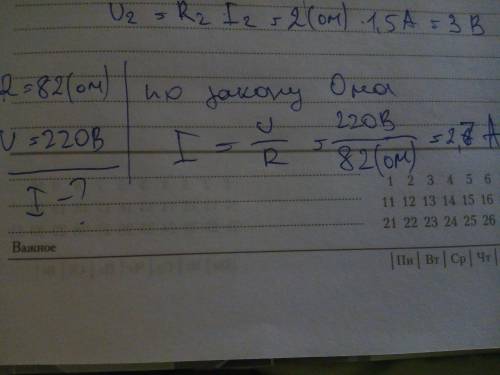 U₂ = R₂ I₂ = 2(ом) · 1,5А = 3 В
R = 82(ом) | по закону Ома
U = 220В | I = U/R = 220В/82(ом) = 2,7 А
I - ?
1 2 3 4 5 6
11 12 13 14 15 16
21 22 23 24 25 26
Важное
|Пн|Вт|Ср|Чт|